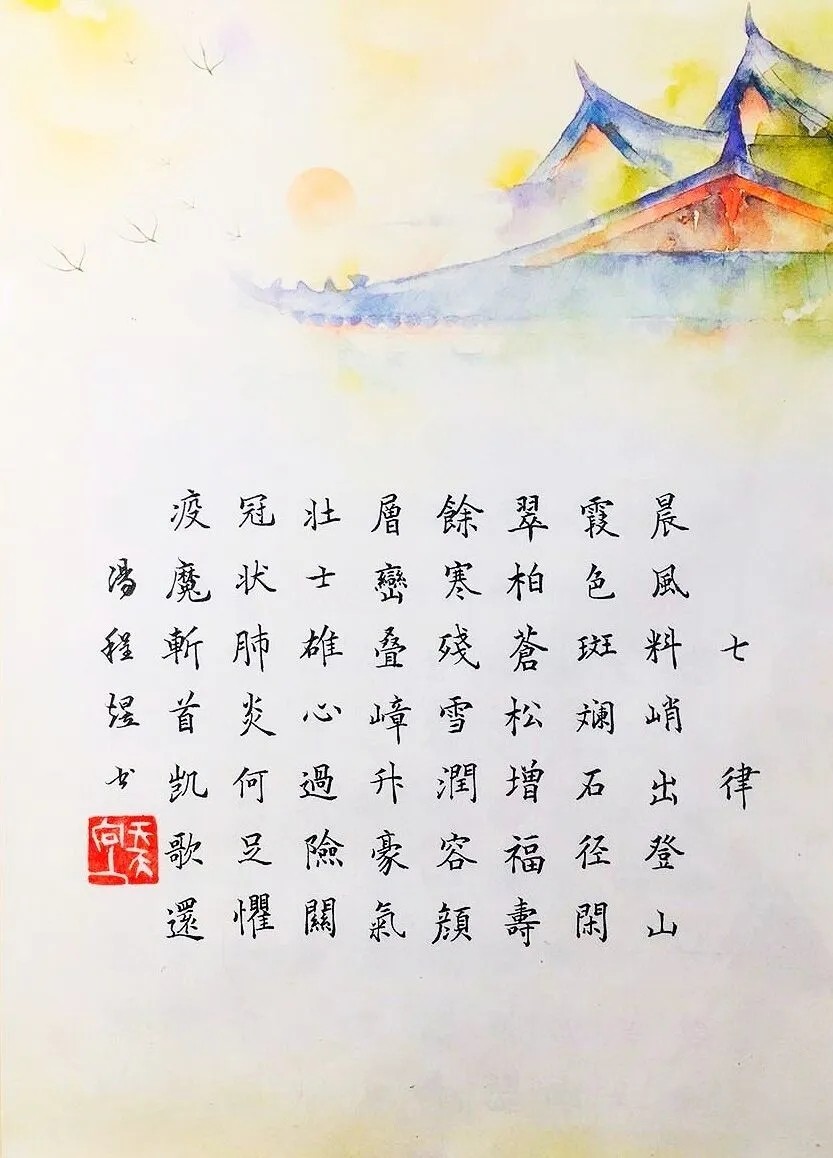 七律
晨風料峭出登山
霞色斑斓石径閑
翠柏蒼松增福壽
餘寒殘雪潤容顔
層巒叠嶂升豪氣
壮士雄心過險關
冠状肺炎何足懼
疫魔斬首凱歌還
湯程煜书
天天向上